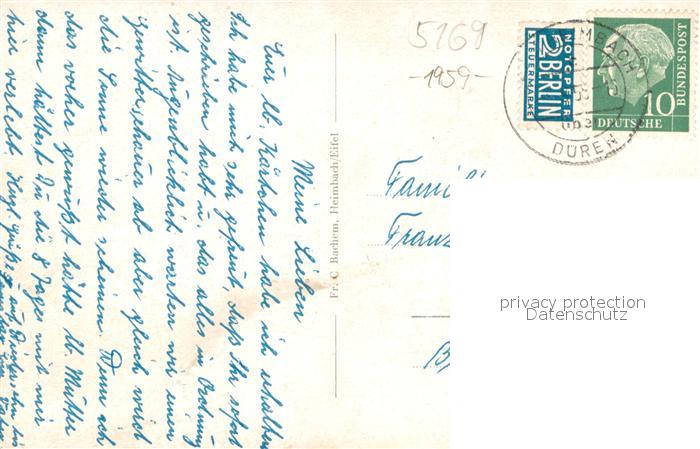 Meine Lieben
Eure lb. Kärtchen habe ich erhalten
Ich habe mich sehr gefreut, daß Ihr sofort
geschrieben habt u. das alles in Ordnung
ist. Augenblicklich warten wir einen
ab aber gleich wird
die Sonne wieder scheinen. Wenn ich
das vorher gewußt hätte lb. Mutter
dann hättest Du die 8 Tage mit mir
hier verlebt. Herzl. Grüße
5169
-1959-
NOTOPFER
2 BERLIN
STEUERMARKE
DEUTSCHE
BUNDESPOST
10
DÜREN
Fami
Franz
Fr. C. Bachem, Heimbach/Eifel
privacy protection
Datenschutz